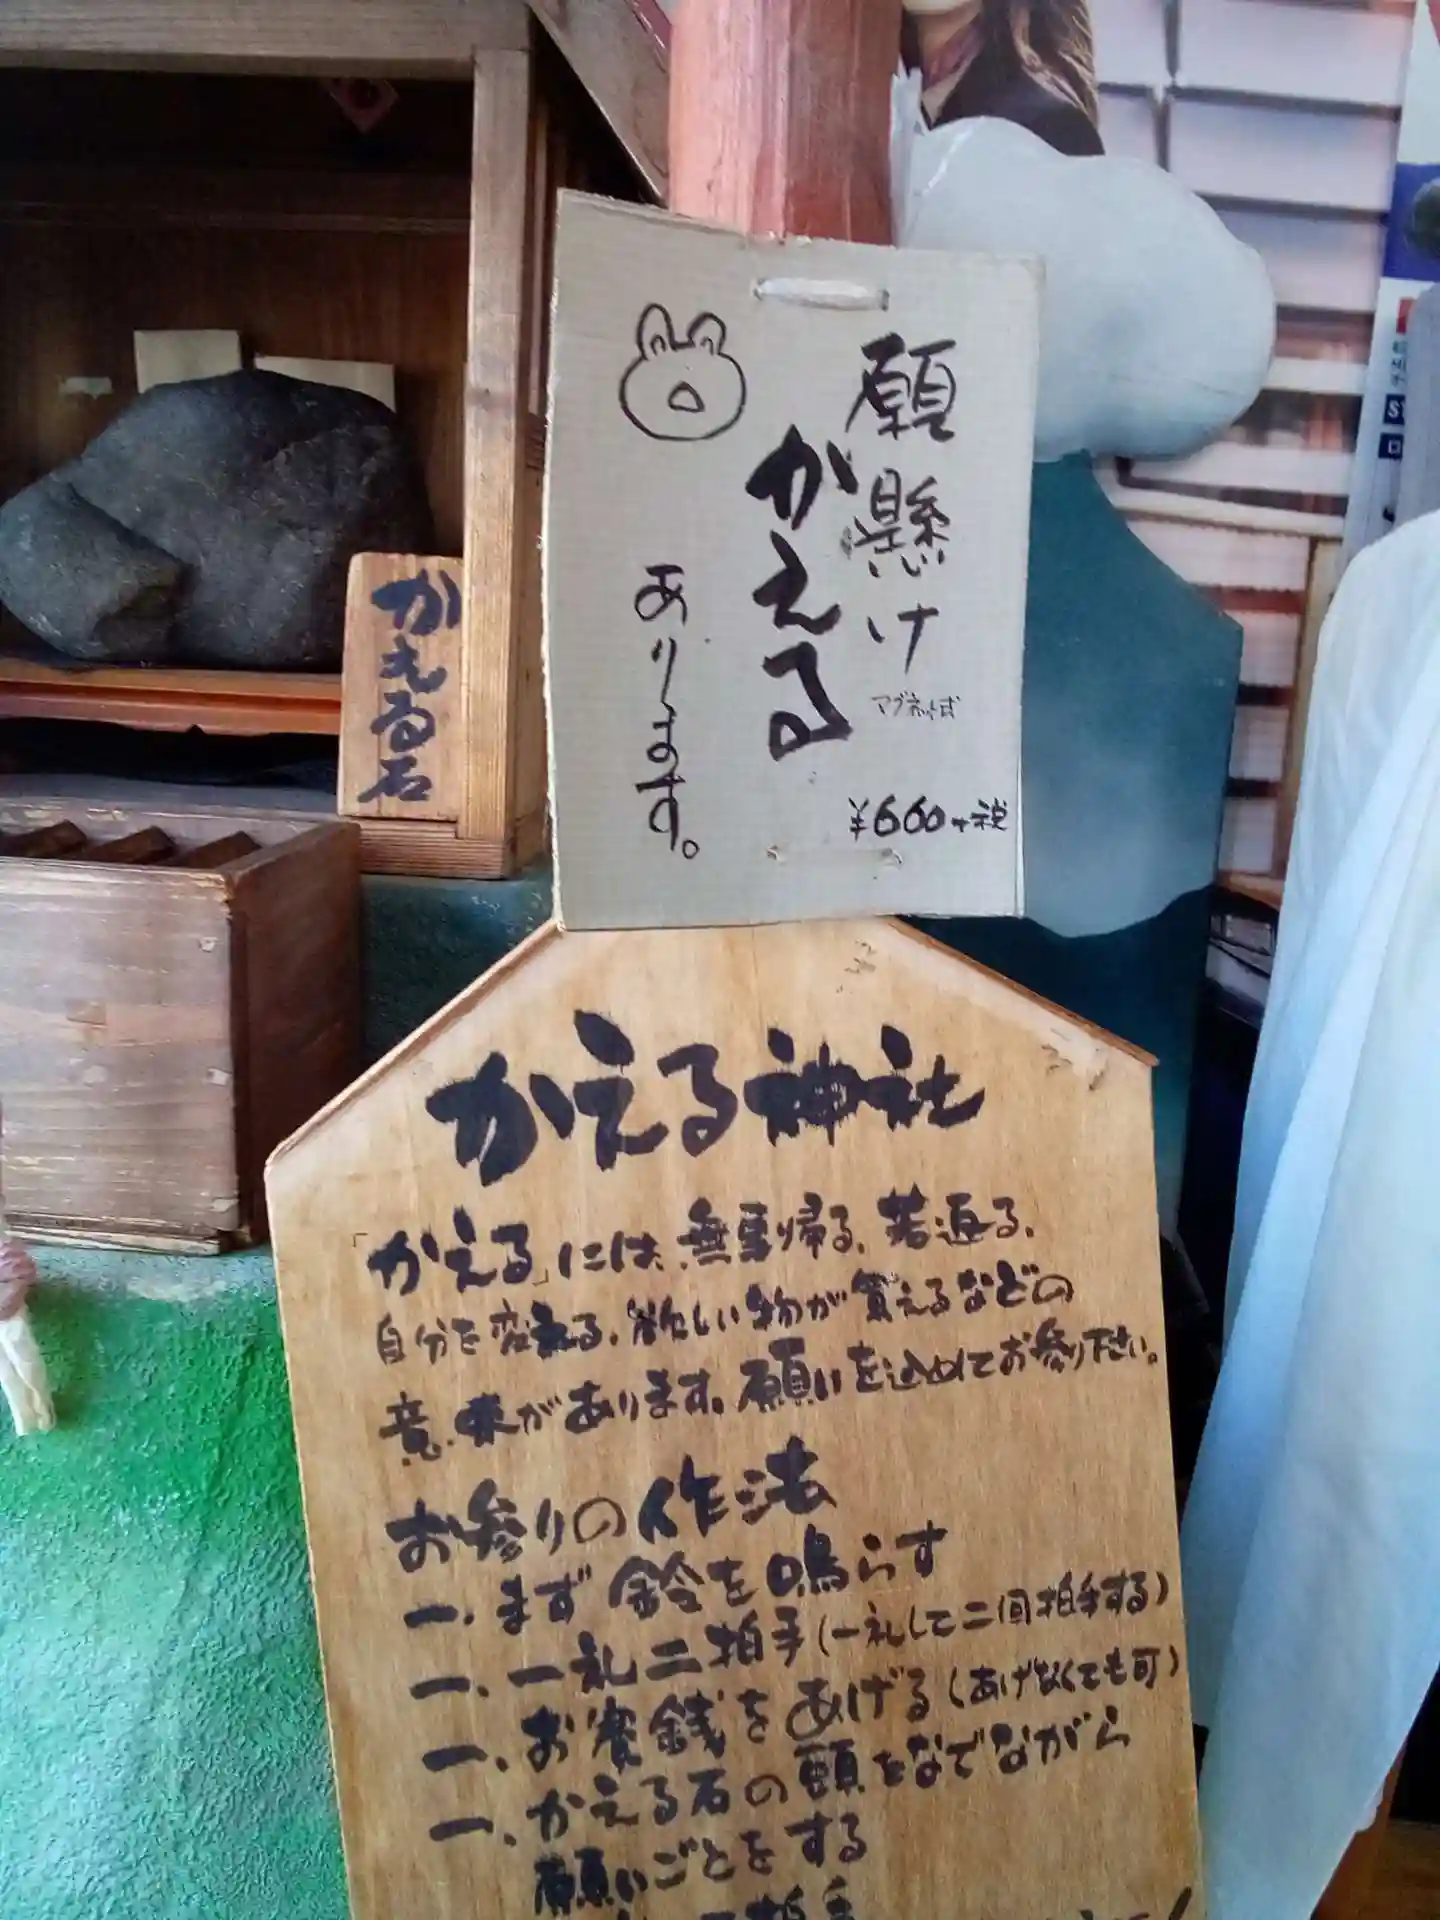 願懸け
マグネット式
かえる
あります。
¥660+税
かえる石
かえる神社
「かえる」には、無事帰る、若返る、
自分を変える、欲しい物が買えるなどの
意味があります。願いを込めてお参り下さい。
お参りの作法
一、まず鈴を鳴らす
一、一礼二拍手(一礼して二回拍手する)
一、お賽銭をあげる(あげなくても可)
一、かえる石の頭をなでながら
願いごとをする